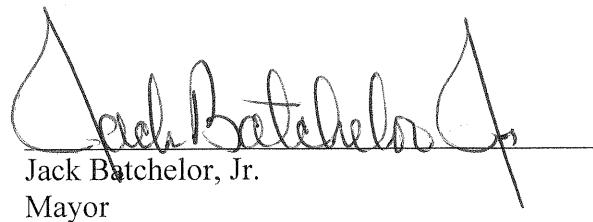 Jack Batchelor Jr
Jack Batchelor, Jr.
Mayor